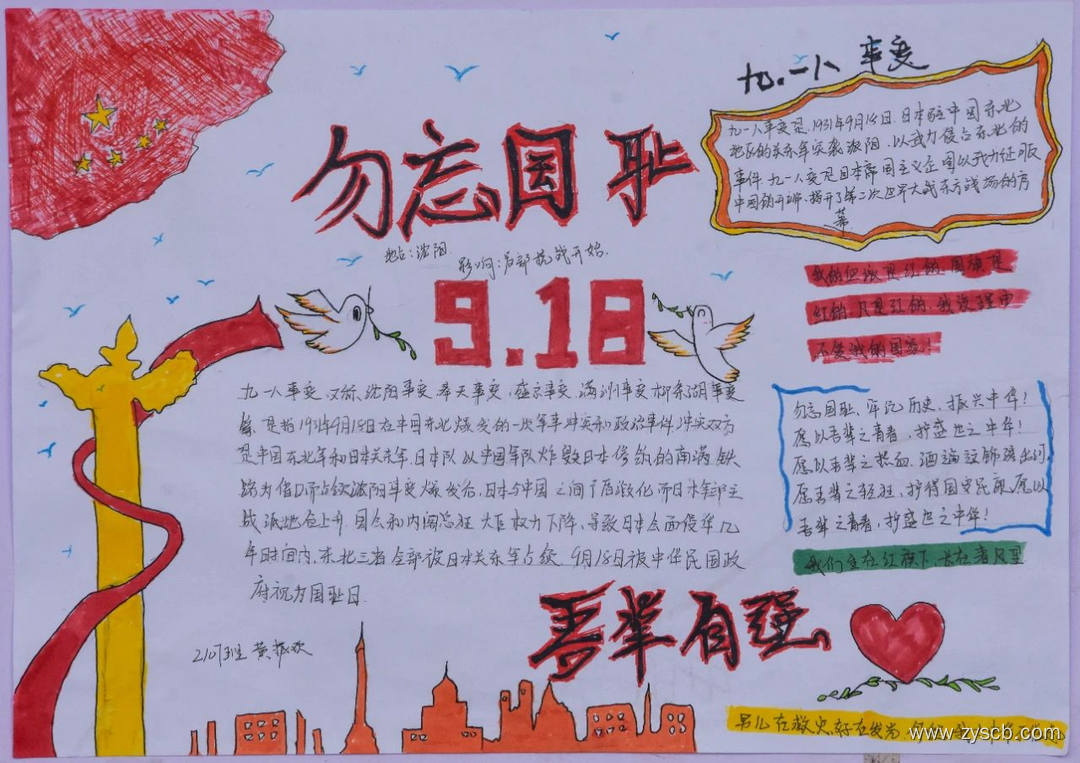 九.一八 事变
勿忘国耻
九一八事变是1931年9月18日,日本驻中国东北
地区的关东军突袭沈阳,以武力侵占东北的
事件.九一八变是日本帝国主义企图以武力征服
中国的开端,揭开了第二次世界大战东方战场的序
幕
地点:沈阳.
影响:局部抗战开始.
9.18
我的
红的,
不爱我的国家!
九一八事变,又称沈阳事变,奉天事变,盛京事变,满洲事变柳条湖事变
等,是指1931年9月18日在中国东北爆发的一次军事冲突和政治事件.冲突双方
是中国东北军和日本关东军,日本队以中国军队炸毁日本修筑的南满铁
路为借口而占领沈阳.事变爆发后,日本与中国之间矛盾激化,而日本军部主
战派地位上升,国会和内阁总 大臣权力下降,导致日本全面侵华.几
年时间内,东北三省全部被日本关东军占领.9月18日被中华民国政
府视为国耻日.
勿忘国耻、牢记历史,振兴中华!
愿以吾辈之青春,护盛世之中华!
愿以吾辈之热血,洒遍
愿吾辈之 护得国安民 愿以
吾辈之青春,护盛世之中华!
我们生在红旗下,长在春风里
吾辈自强
2107班 黄
www.zyscb.com